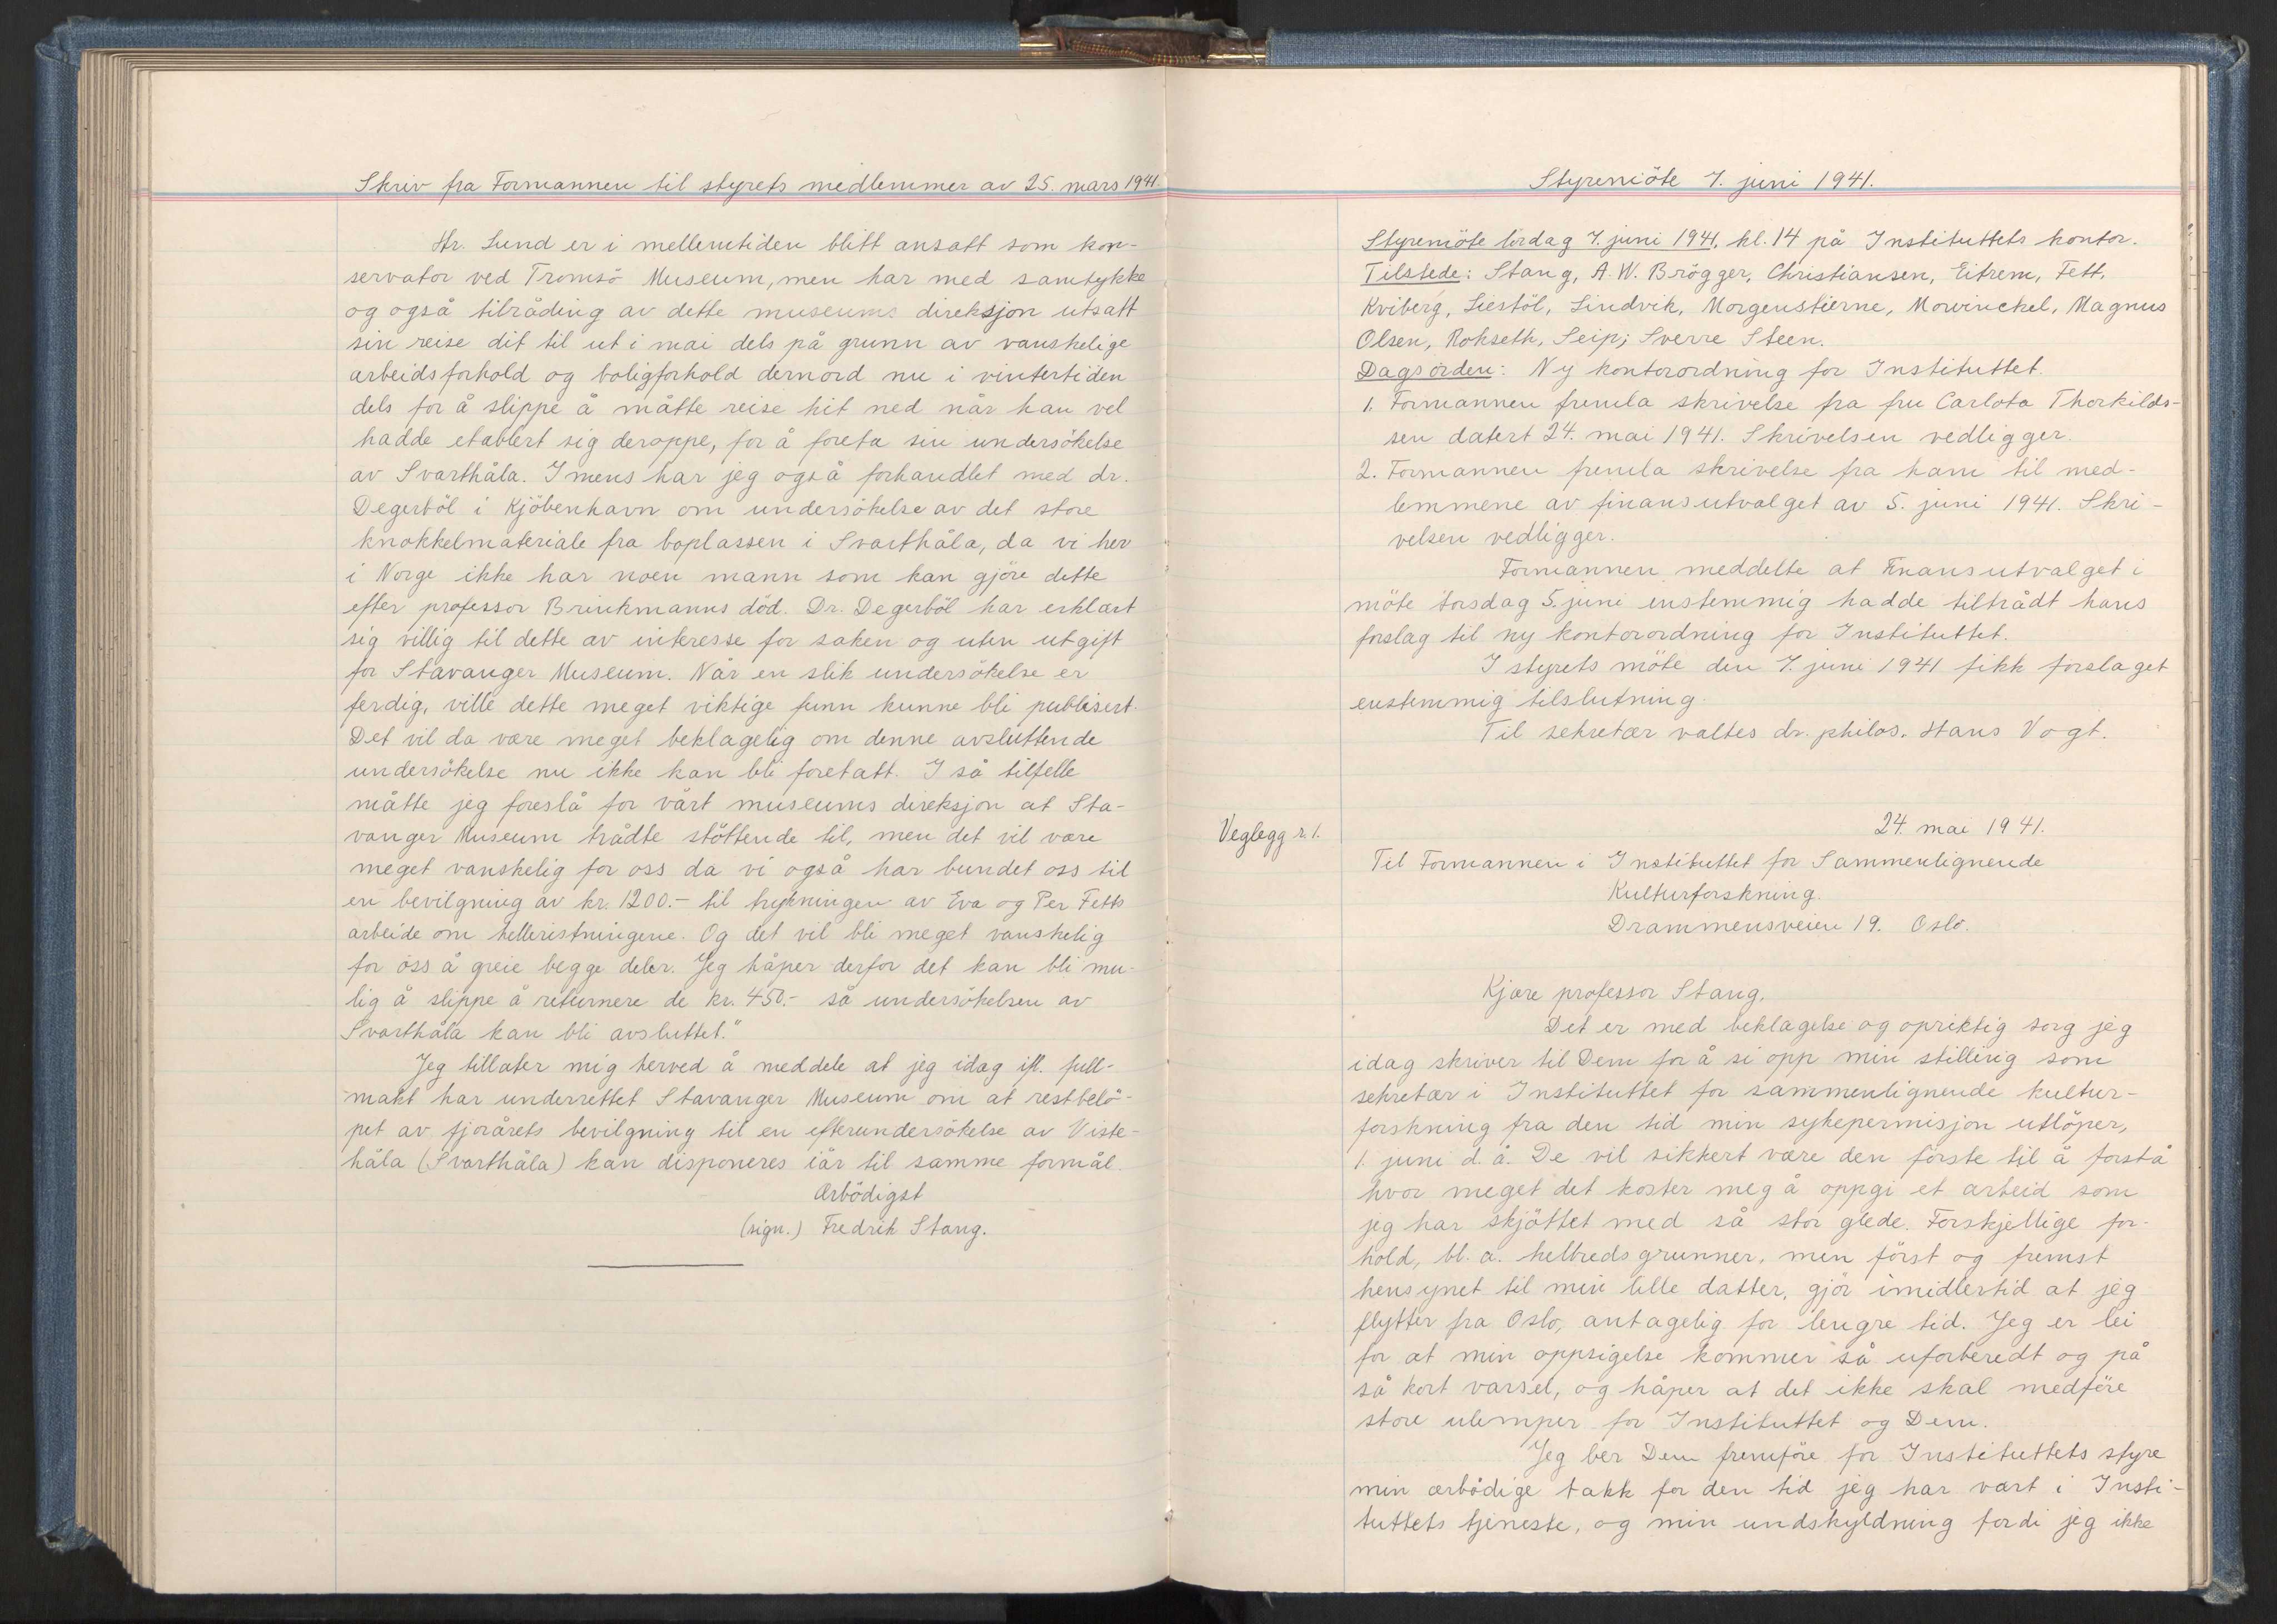 Skriv fra Formannen til styrets medlemmer av 25. mars 1941.
Hr. Lund er i mellemtiden blitt ansatt som kon-
servator ved Tromsö Museum, men har med samtykke
og også tilråding av dette museums direksjon utsatt
sin reise dit til ut i mai dels på grunn av vanskelige
arbeidsforhold og boligforhold dernord nu i vintertiden
dels for å slippe å måtte reise hit ned når han vel
hadde etablert sig deroppe, for å foreta sin undersökelse
av Svarthåla. Imens har jeg også forhandlet med dr.
Degerböl i Kjöbenhavn om undersökelse av det store
knokkelmateriale fra boplassen i Svarthåla, da vi her
i Norge ikke har noen mann som kan gjöre dette
efter professor Brinkmanns död. Dr. Degerböl har erklært
sig villig til dette av interesse for saken og uten utgift
for Stavanger Museum. Når en slik undersökelse er
ferdig, ville dette meget viktige funn kunne bli publisert.
Det vil da være meget beklagelig om denne avsluttende
undersökelse nu ikke kan bli foretatt. I så tilfelle
måtte jeg foreslå for vårt museums direksjon at Sta-
vanger Museum trådte stöttende til, men det vil være
meget vanskelig for oss da vi også har bundet oss til
en bevilgning av kr. 1200.- til trykningen av Eva og Per Fetts
arbeide om helleristningene. Og det vil bli meget vanskelig
for oss å greie begge deler. Jeg håper derfor det kan bli mu-
lig å slippe å returnere de kr. 450.- så undersökelsen av
Svarthåla kan bli avsluttet."
Jeg tillater mig herved å meddele at jeg idag ifl. full-
makt har underrettet Stavanger Museum om at restbelö-
pet av fjorårets bevilgning til en efterundersökelse av Viste-
håla (Svarthåla) kan disponeres iår til samme formål.
Ærbödigst
(sign.) Fredrik Stang.
Styremöte 7. juni 1941.
Styremöte lördag 7. juni 1941, kl. 14 på Instituttets kontor.
Tilstede: Stang, A. W. Brögger, Christiansen, Eitrem, Fett,
Kviberg, Liestöl, Lindvik, Morgenstierne, Mowinckel, Magnus
Olsen, Rokseth, Seip; Sverre Steen.
Dagsorden: Ny kontorordning for Instituttet.
1. Formannen fremla skrivelse fra fru Carlota Thorkilds-
sen datert 24. mai 1941. Skrivelsen vedligger.
2. Formannen fremla skrivelse fra ham til med-
lemmene av finansutvalget av 5. juni 1941. Skri-
velsen vedligger.
Formannen meddelte at Finansutvalget i
möte torsdag 5. juni enstemmig hadde tiltrådt hans
forslag til ny kontorordning for Instituttet.
I styrets möte den 7. juni 1941 fikk forslaget
enstemmig tilslutning.
Til sekretær valtes dr. philos. Hans Vogt.
Veglegg r. 1.
24. mai 1941.
Til Formannen i Instituttet for Sammenlignende
Kulturforskning.
Drammensveien 19. Oslo.
Kjære professor Stang,
Det er med beklagelse og opriktig sorg jeg
idag skriver til Dem for å si opp min stilling som
sekretær i Instituttet for sammenlignende kultur-
forskning fra den tid min sykepermisjon utlöper,
1. juni d. å. De vil sikkert være den förste til å forstå
hvor meget det koster meg å oppgi et arbeid som
jeg har skjöttet med så stor glede. Forskjellige for-
hold, bl. a. helbredsgrunner, men först og fremst
hensynet til min lille datter, gjör imidlertid at jeg
flytter fra Oslo, antagelig for lengre tid. Jeg er lei
for at min oppsigelse kommer så uforberedt og på
så kort varsel, og håper at det ikke skal medföre
store ulemper for Instituttet og Dem.
Jeg ber Dem fremföre for Instituttets styre
min ærbödige takk for den tid jeg har vært i Insti-
tuttets tjeneste, og min undskyldning fordi jeg ikke